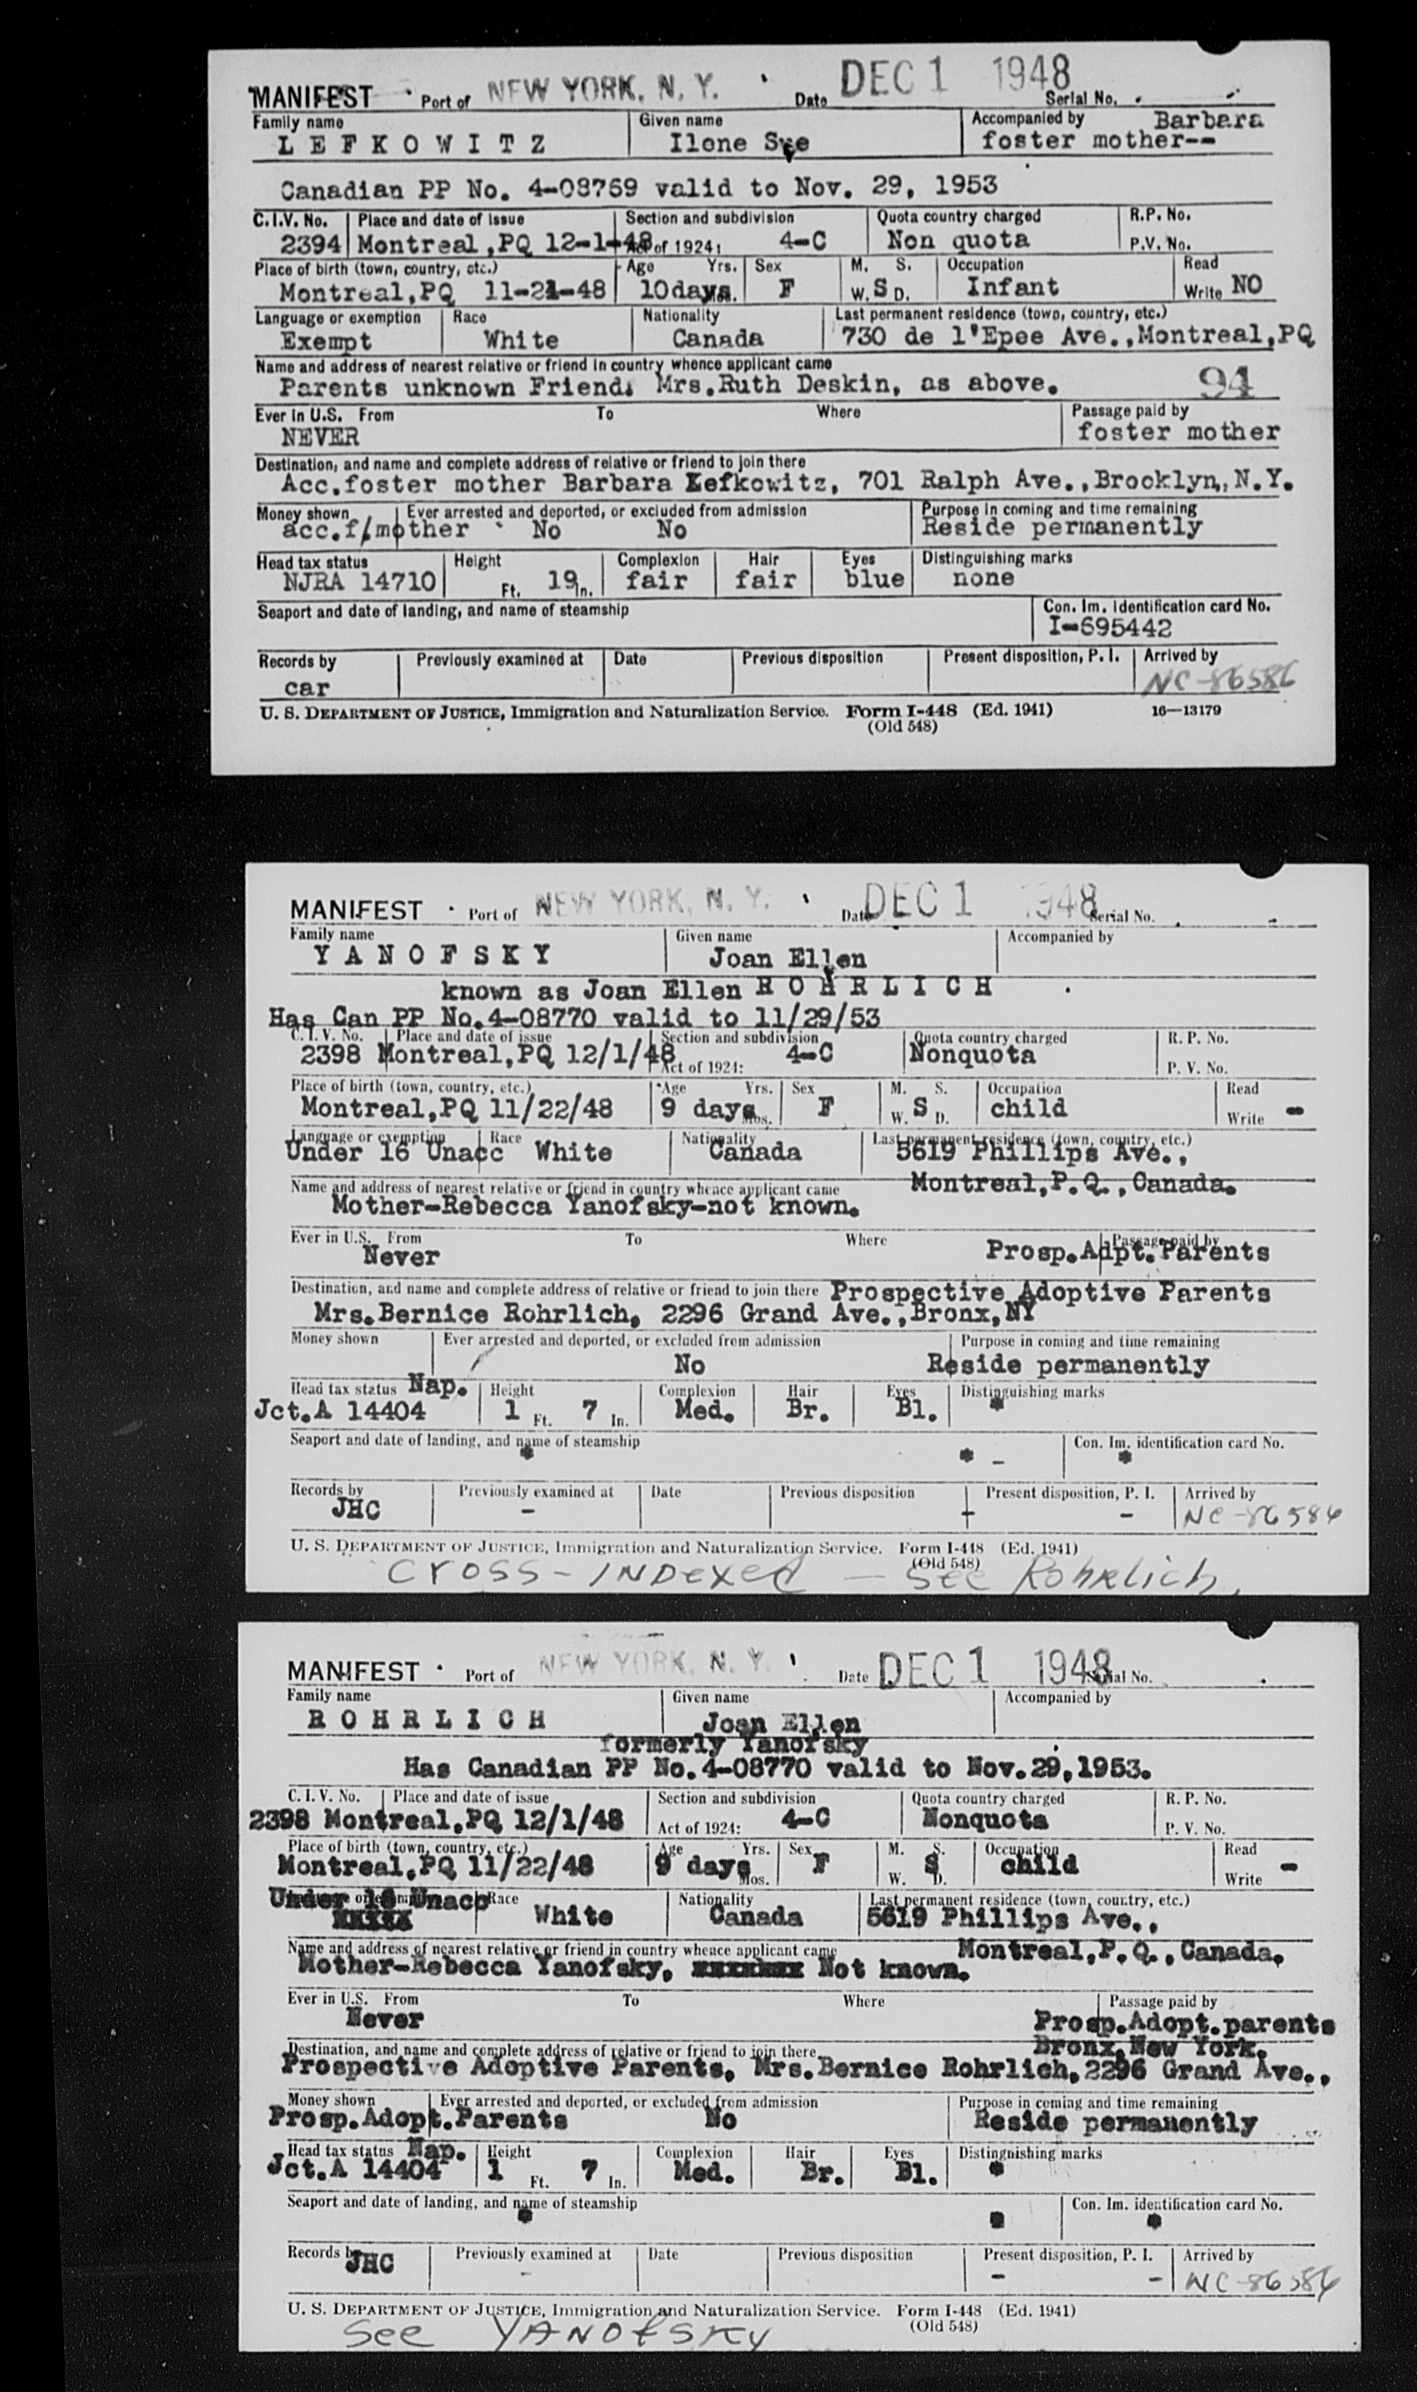 MANIFEST Port of NEW YORK, N. Y. Date DEC 1 1948 Serial No.
Family name Given name Accompanied by Barbara
LEFKOWITZ Ilone Sye foster mother--
Canadian PP No. 4-08769 valid to Nov. 29, 1953
C.I.V. No. Place and date of issue Section and subdivision Quota country charged R.P. No.
2394 Montreal,PQ 12-1-48 Act of 1924: 4-C Non quota P.V. No.
Place of birth (town, country, etc.) Age Yrs. Sex M. S. Occupation Read
Montreal,PQ 11-21-48 10days. Mos. F W. S D. Infant Write NO
Language or exemption Race Nationality Last permanent residence (town, country, etc.)
Exempt White Canada 730 de l'Epee Ave.,Montreal,PQ
Name and address of nearest relative or friend in country whence applicant came
Parents unknown Friend: Mrs.Ruth Deskin, as above. 94
Ever in U.S. From To Where Passage paid by
NEVER foster mother
Destination, and name and complete address of relative or friend to join there
Acc.foster mother Barbara Lefkowitz, 701 Ralph Ave.,Brooklyn,N.Y.
Money shown Ever arrested and deported, or excluded from admission Purpose in coming and time remaining
acc.f/mother No No Reside permanently
Head tax status Height Complexion Hair Eyes Distinguishing marks
NJRA 14710 Ft. 19 In. fair fair blue none
Seaport and date of landing, and name of steamship Con. Im. identification card No.
I-695442
Records by Previously examined at Date Previous disposition Present disposition, P. I. Arrived by
car NC-86586
U. S. DEPARTMENT OF JUSTICE, Immigration and Naturalization Service. Form I-448 (Ed. 1941) 16—13179
(Old 548)
MANIFEST Port of NEW YORK, N. Y. Date DEC 1 1948 Serial No.
Family name Given name Accompanied by
YANOFSKY Joan Ellen
known as Joan Ellen ROHRLICH
Has Can PP No.4-08770 valid to 11/29/53
C. I. V. No. Place and date of issue Section and subdivision Quota country charged R. P. No.
2398 Montreal,PQ 12/1/48 Act of 1924: 4-C Nonquota P. V. No.
Place of birth (town, country, etc.) Age Yrs. Sex M. S. Occupation Read
Montreal,PQ 11/22/48 9 days Mos. F W. S D. child Write -
Language or exemption Race Nationality Last permanent residence (town, country, etc.)
Under 16 Unacc White Canada 5619 Phillips Ave.,
Name and address of nearest relative or friend in country whence applicant came Montreal,P.Q.,Canada.
Mother-Rebecca Yanofsky-not known.
Ever in U.S. From To Where Passage paid by
Never Prosp.Adpt.Parents
Destination, and name and complete address of relative or friend to join there Prospective Adoptive Parents
Mrs.Bernice Rohrlich, 2296 Grand Ave.,Bronx,NY
Money shown Ever arrested and deported, or excluded from admission Purpose in coming and time remaining
No Reside permanently
Head tax status Nap. Height Complexion Hair Eyes Distinguishing marks
Jct.A 14404 1 Ft. 7 In. Med. Br. Bl. *
Seaport and date of landing, and name of steamship Con. Im. identification card No.
* * - *
Records by Previously examined at Date Previous disposition Present disposition, P. I. Arrived by
JHC - - NC-86586
U. S. DEPARTMENT OF JUSTICE, Immigration and Naturalization Service. Form I-448 (Ed. 1941)
(Old 548)
Cross-INDexed — See Rohrlich.
MANIFEST Port of NEW YORK, N. Y. Date DEC 1 1948 Serial No.
Family name Given name Accompanied by
ROHRLICH Joan Ellen
formerly Yanofsky
Has Canadian PP No.4-08770 valid to Nov.29,1953.
C. I. V. No. Place and date of issue Section and subdivision Quota country charged R. P. No.
2398 Montreal,PQ 12/1/48 Act of 1924: 4-C Nonquota P. V. No.
Place of birth (town, country, etc.) Age Yrs. Sex M. S. Occupation Read
Montreal,PQ 11/22/48 9 days Mos. F W. S D. child Write -
Under 16 Unacc Race Nationality Last permanent residence (town, country, etc.)
White Canada 5619 Phillips Ave.,
Name and address of nearest relative or friend in country whence applicant came Montreal,P.Q.,Canada.
Mother-Rebecca Yanofsky, Not known.
Ever in U.S. From To Where Passage paid by
Never Prosp.Adopt.parents
Destination, and name and complete address of relative or friend to join there Bronx,New York.
Prospective Adoptive Parents, Mrs.Bernice Rohrlich,2296 Grand Ave.,
Money shown Ever arrested and deported, or excluded from admission Purpose in coming and time remaining
Prosp.Adopt.Parents No Reside permanently
Head tax status Nap. Height Complexion Hair Eyes Distinguishing marks
Jct.A 14404 1 Ft. 7 In. Med. Br. Bl. *
Seaport and date of landing, and name of steamship Con. Im. identification card No.
* * *
Records by Previously examined at Date Previous disposition Present disposition, P. I. Arrived by
JHC - - - NC-86586
U. S. DEPARTMENT OF JUSTICE, Immigration and Naturalization Service. Form I-448 (Ed. 1941)
(Old 548)
See YANOfSKy